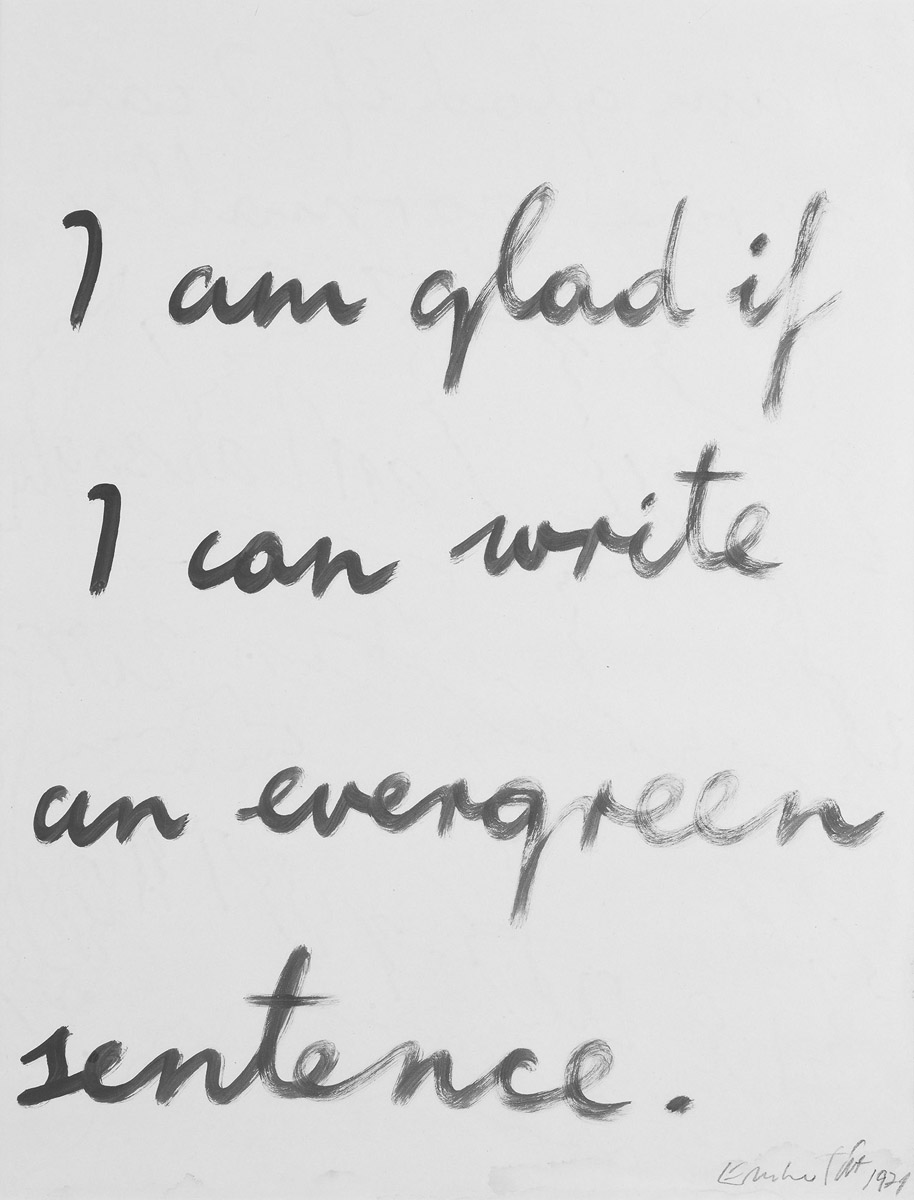 I am glad if
I can write
an evergreen
sentence.